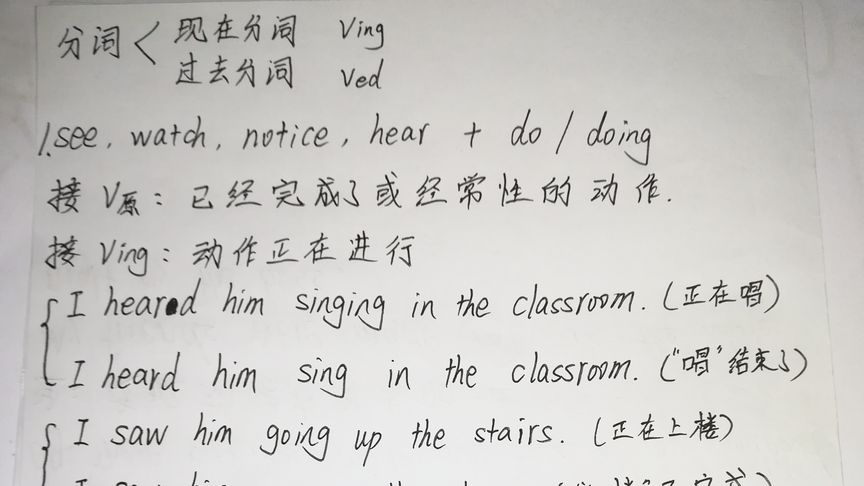 分词 < 现在分词 Ving
过去分词 Ved
1.see, watch, notice, hear + do / doing
接 V原: 已经完成了或经常性的动作.
接 Ving: 动作正在进行
I heard him singing in the classroom. (正在唱)
I heard him sing in the classroom. ("唱"结束了)
I saw him going up the stairs. (正在上楼)